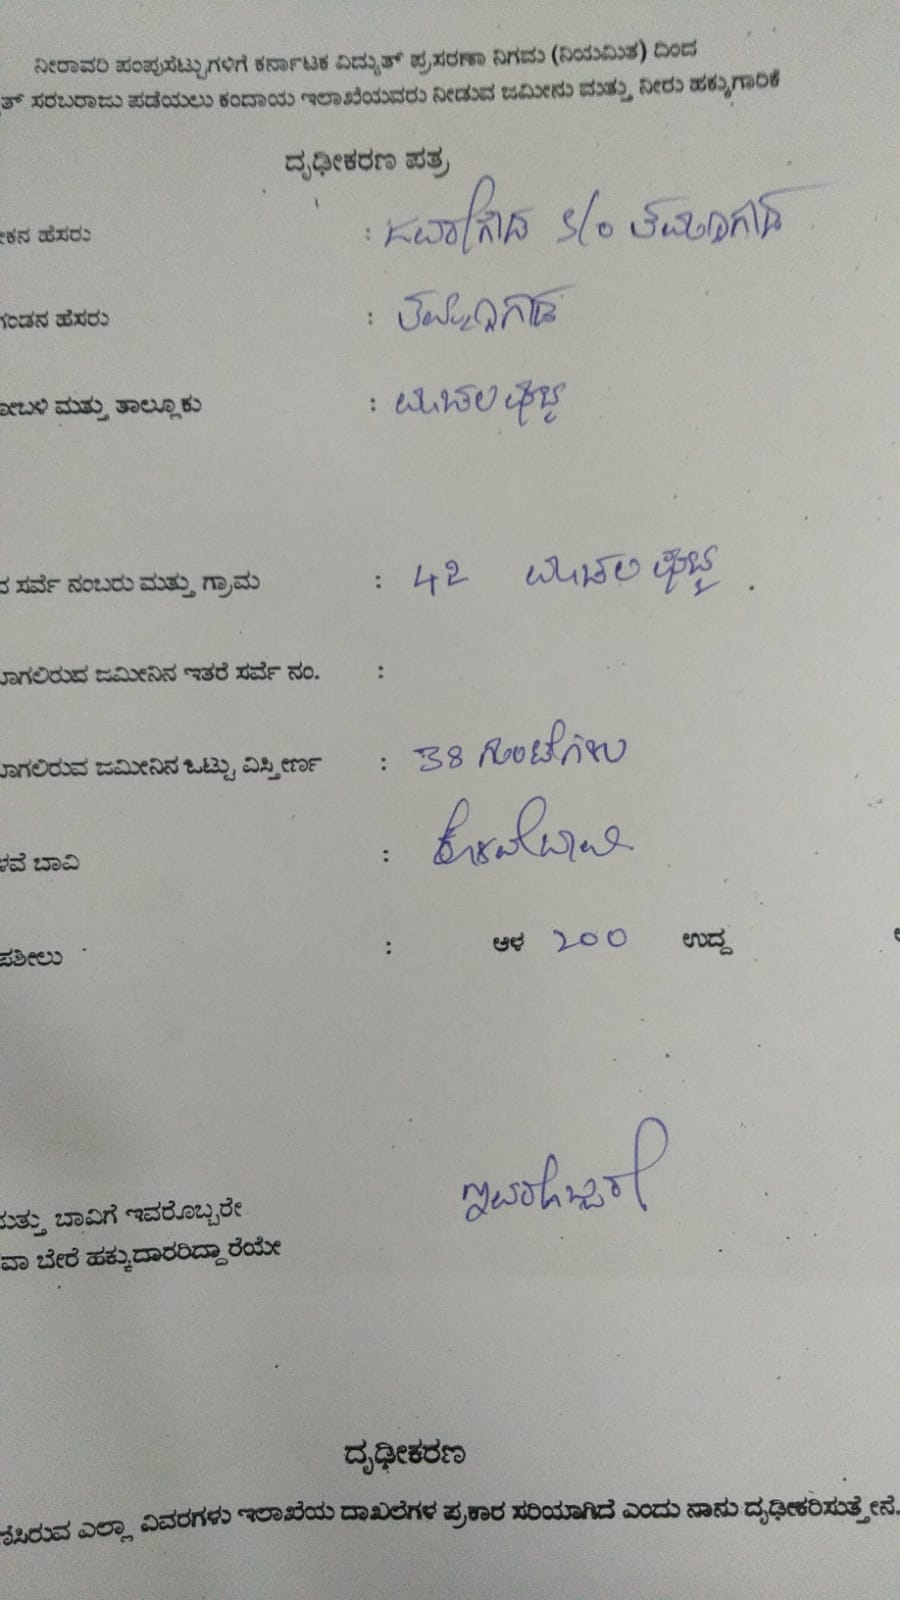 ನೀರಾವರಿ ಪಂಪುಸೆಟ್ಟುಗಳಿಗೆ ಕರ್ನಾಟಕ ವಿದ್ಯುತ್ ಪ್ರಸರಣಾ ನಿಗಮ (ನಿಯಮಿತ) ದಿಂದ
ತ್ ಸರಬರಾಜು ಪಡೆಯಲು ಕಂದಾಯ ಇಲಾಖೆಯವರು ನೀಡುವ ಜಮೀನು ಮತ್ತು ನೀರು ಹಕ್ಕುಗಾರಿಕೆ
ದೃಢೀಕರಣ ಪತ್ರ
ಕನ ಹೆಸರು : S/o
ಗಂಡನ ಹೆಸರು :
ೋಬಳಿ ಮತ್ತು ತಾಲ್ಲೂಕು :
ದ ಸರ್ವೆ ನಂಬರು ಮತ್ತು ಗ್ರಾಮ : 42
ಾಗಲಿರುವ ಜಮೀನಿನ ಇತರೆ ಸರ್ವೆ ನಂ. :
ಾಗಲಿರುವ ಜಮೀನಿನ ಒಟ್ಟು ವಿಸ್ತೀರ್ಣ : 38 ಗುಂಟೆಗಳು
ಳವೆ ಬಾವಿ : ಕೊಳವೆಬಾವಿ
ಪಶೀಲು : ಆಳ 200 ಉದ್ದ
ಮತ್ತು ಬಾವಿಗೆ ಇವರೊಬ್ಬರೇ ಇವರೊಬ್ಬರೇ
ವಾ ಬೇರೆ ಹಕ್ಕುದಾರರಿದ್ದಾರೆಯೇ
ದೃಢೀಕರಣ
ಸಿರುವ ಎಲ್ಲಾ ವಿವರಗಳು ಇಲಾಖೆಯ ದಾಖಲೆಗಳ ಪ್ರಕಾರ ಸರಿಯಾಗಿದೆ ಎಂದು ನಾನು ದೃಢೀಕರಿಸುತ್ತೇನೆ.